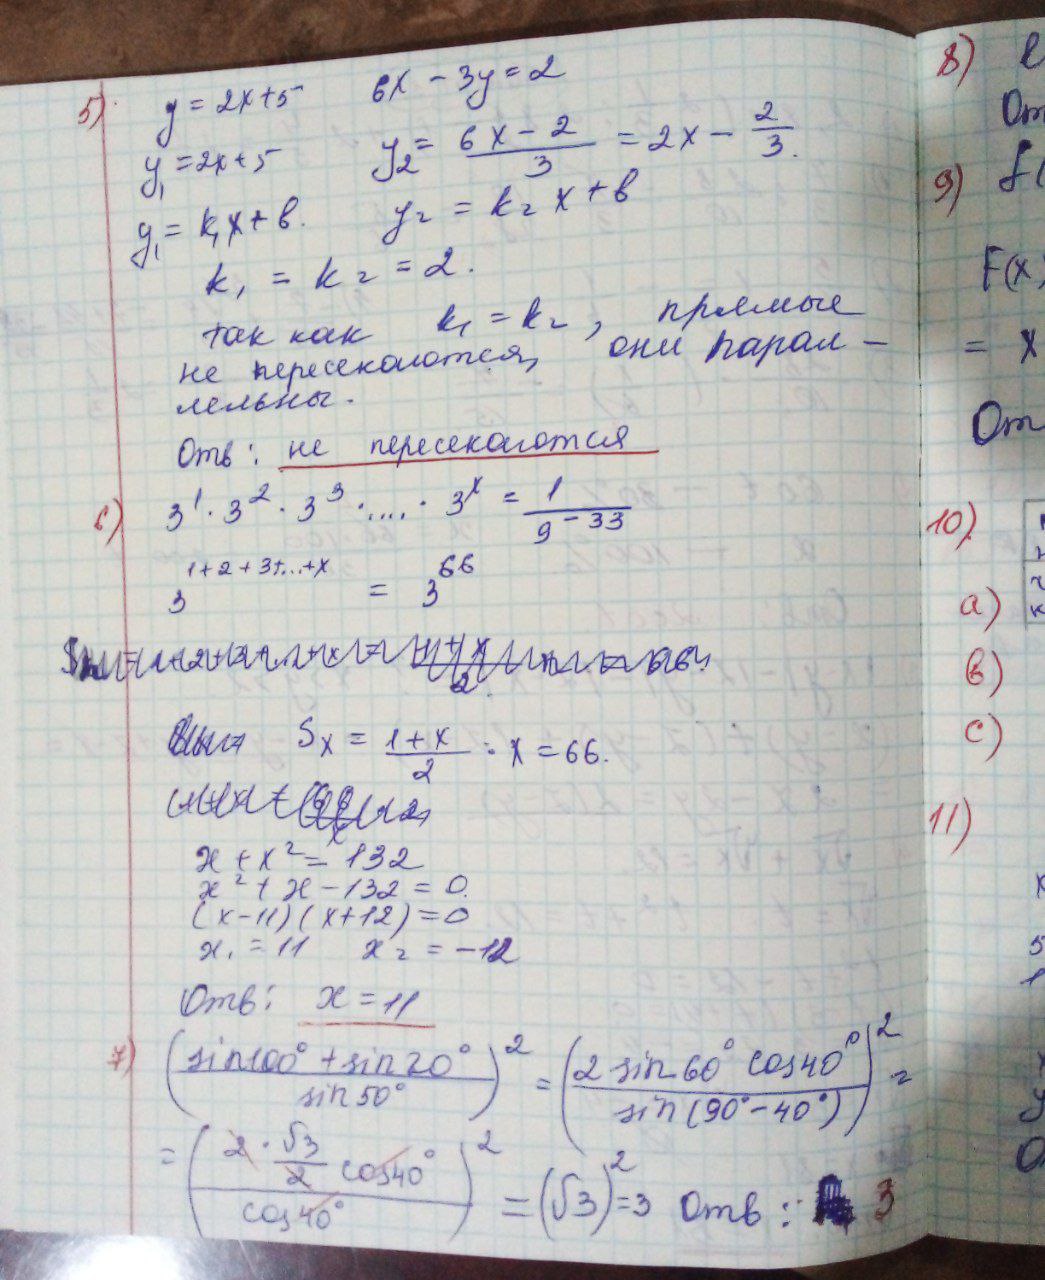 5) y = 2x+5   6x - 3y = 2
y₁ = 2x+5   y₂ = \frac{6x-2}{3} = 2x - \frac{2}{3}.
y₁ = k₁x + b.   y₂ = k₂x + b
k₁ = k₂ = 2.
так как k₁ = k₂, прямые
не пересекаются, они парал-
лельны.
Отв: не пересекаются
6) 3^1 · 3^2 · 3^3 · .... · 3^x = \frac{1}{9^{-33}}
3^{1+2+3+...+x} = 3^{66}
S_x = \frac{1+x}{2} · x = 66.
x + x² = 132
x² + x - 132 = 0.
(x-11)(x+12) = 0
x₁ = 11   x₂ = -12
Отв: x = 11
7) (\frac{sin100° + sin20°}{sin50°})² = (\frac{2 sin60° cos40°}{sin(90°-40°)})² =
= (\frac{2 · \frac{√3}{2} cos40°}{cos40°})² = (√3)² = 3   Отв: 3
8)
От
9) f(
F(x)
= x
От
10).
a)
b)
c)
11)
x
5
1
y